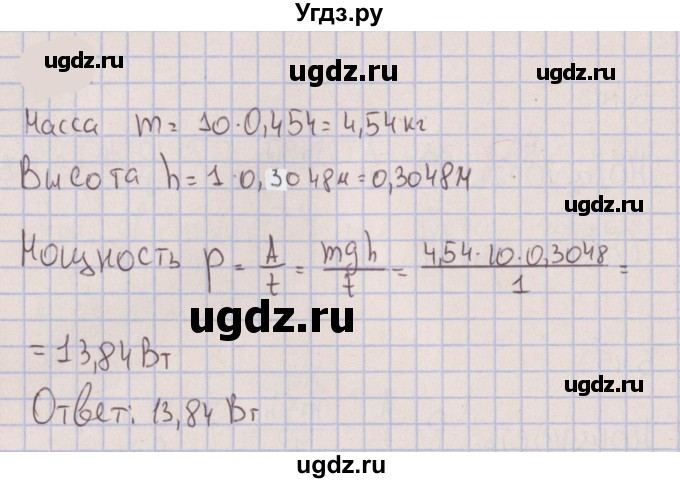 Угдз.ру
ugdz.ru ugdz.ru ugdz.ru
Масса m = 10·0,454 = 4,54 кг
Высота h = 1·0,3048м = 0,3048м
ugdz.ru
Мощность P = A/t = mgh/t = 4,54·10·0,3048/1 =
ugdz.ru
= 13,84 Вт
ugdz.ru
Ответ: 13,84 Вт
ugdz.ru
ugdz.ru